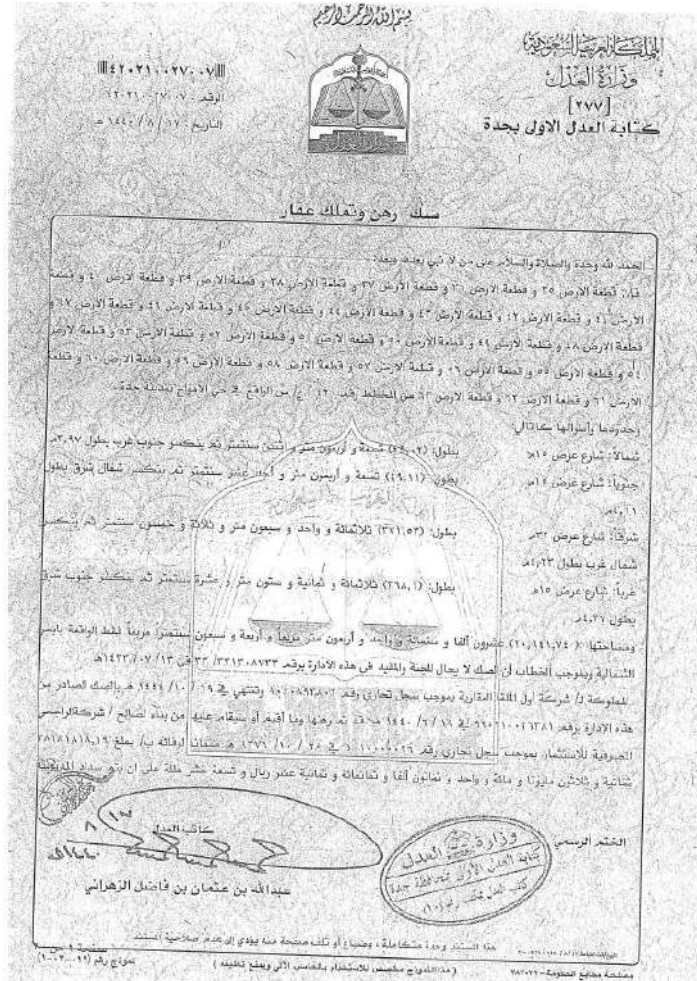 بسم الله الرحمن الرحيم
المملكة العربية السعودية
وزارة العدل
[٢٧٧]
كتابة العدل الاولى بجدة
٤٢٠٢١٠٠٢٧٠٠٧
الرقم: ٤٢٠٢١٠٠٢٧٠٠٧
التاريخ: ١٧ / ٨ / ١٤٤٠ هـ
صك رهن وتملك عقار
الحمد لله وحده والصلاة والسلام على من لا نبي بعده، وبعد:
فإن قطعة الارض ٣٥ و قطعة الارض ٣٦ و قطعة الارض ٣٧ و قطعة الارض ٣٨ و قطعة الارض ٣٩ و قطعة الارض ٤٠ و قطعة
الارض ٤١ و قطعة الارض ٤٢ و قطعة الارض ٤٣ و قطعة الارض ٤٤ و قطعة الارض ٤٥ و قطعة الارض ٤٦ و قطعة الارض ٤٧ و
قطعة الارض ٤٨ و قطعة الارض ٤٩ و قطعة الارض ٥٠ و قطعة الارض ٥١ و قطعة الارض ٥٢ و قطعة الارض ٥٣ و قطعة الارض
٥٤ و قطعة الارض ٥٥ و قطعة الارض ٥٦ و قطعة الارض ٥٧ و قطعة الارض ٥٨ و قطعة الارض ٥٩ و قطعة الارض ٦٠ و قطعة
الارض ٦١ و قطعة الارض ٦٢ و قطعة الارض ٦٣ من المخطط رقم الواقع في حي الامواج بمدينة جدة.
وحدودها وأطوالها كالتالي:
شمالاً: شارع عرض ١٥م بطول: تسعة و أربعون متر و إثنين سنتمتر ثم ينكسر جنوب غرب بطول ٣,٩٧م
جنوباً: شارع عرض ١٥م بطول: (٤٩,١١) تسعة و أربعون متر و أحد عشر سنتمتر ثم ينكسر شمال شرق بطول
شرقاً: شارع عرض ٣٢م بطول: (٣٧١,٥٣) ثلاثمائة و واحد و سبعون متر و ثلاثة و خمسون سنتمتر ثم ينكسر
شمال غرب بطول ٤,٢٣م
غرباً: شارع عرض ١٥م بطول: (٣٦٨,١) ثلاثمائة و ثمانية و ستون متر و عشرة سنتمتر ثم ينكسر جنوب شرق
بطول ٤,٢٧م
ومساحتها: (٢٠,٦٤١,٧٤) عشرون ألفا و ستمائة و واحد و أربعون متر مربعاً و أربعة و سبعون سنتمتر مربعاً فقط الواقعة بابحر
الشمالية وبموجب الخطاب أن الصك لا يحال للجنة والمقيد في هذه الادارة برقم ٣٣٢١٣٠٨٧٣٣ في ١٣ / ٠٧ / ١٤٣٣هـ
المملوكة لـ/ شركة أول الملقا العقارية بموجب سجل تجاري رقم وتنتهي في ١٩ / ١٠ / ١٤٤٤ هـ بالصك الصادر من
هذه الإدارة برقم في ١٦ / ٦ / ١٤٤٠ هـ قد تم رهنها وما أقيم أو سيقام عليها من بناء لصالح / شركة الراجحي
المصرفية للاستثمار بموجب سجل تجاري رقم في ٢٥ / ١٠ / ١٣٧٦ هـ ضمانا لوفائه ب/ مبلغ ٣٨١٨١٨١٨,١٩
ثمانية و ثلاثين مليونا و مائة و واحد و ثمانون ألفا و ثمانمائة و ثمانية عشر ريال و تسعة عشر هللة على ان يتم سداد المديونية
الختم الرسمي
كاتب العدل
١٧ / ٨ / ١٤٤٠هـ
عبدالله بن عثمان بن فاضل الزهراني
وزارة العدل
كتابة العدل الأولى بمحافظة جدة
هذا المستند وحدة متكاملة، وضياع أو تلف صفحة منه يؤدي إلى عدم صلاحية المستند
مصلحة مطابع الحكومة
(هذا النموذج مخصص للاستخدام بالحاسب الآلي ويمنع تغليفه)